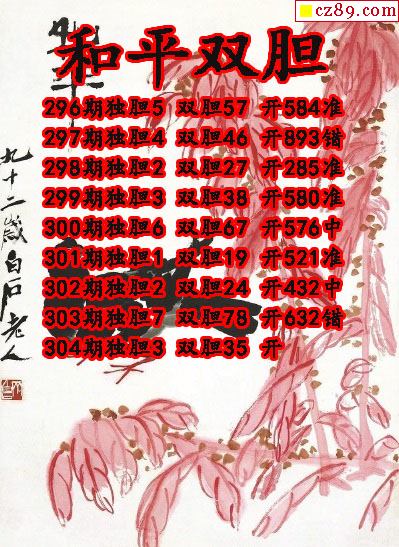 cz89.com
和平双胆
296期独胆5 双胆57 开584准
297期独胆4 双胆46 开893错
298期独胆2 双胆27 开285准
299期独胆3 双胆38 开580准
300期独胆6 双胆67 开576中
301期独胆1 双胆19 开521准
302期独胆2 双胆24 开432中
303期独胆7 双胆78 开632错
304期独胆3 双胆35 开
九十二岁白石老人